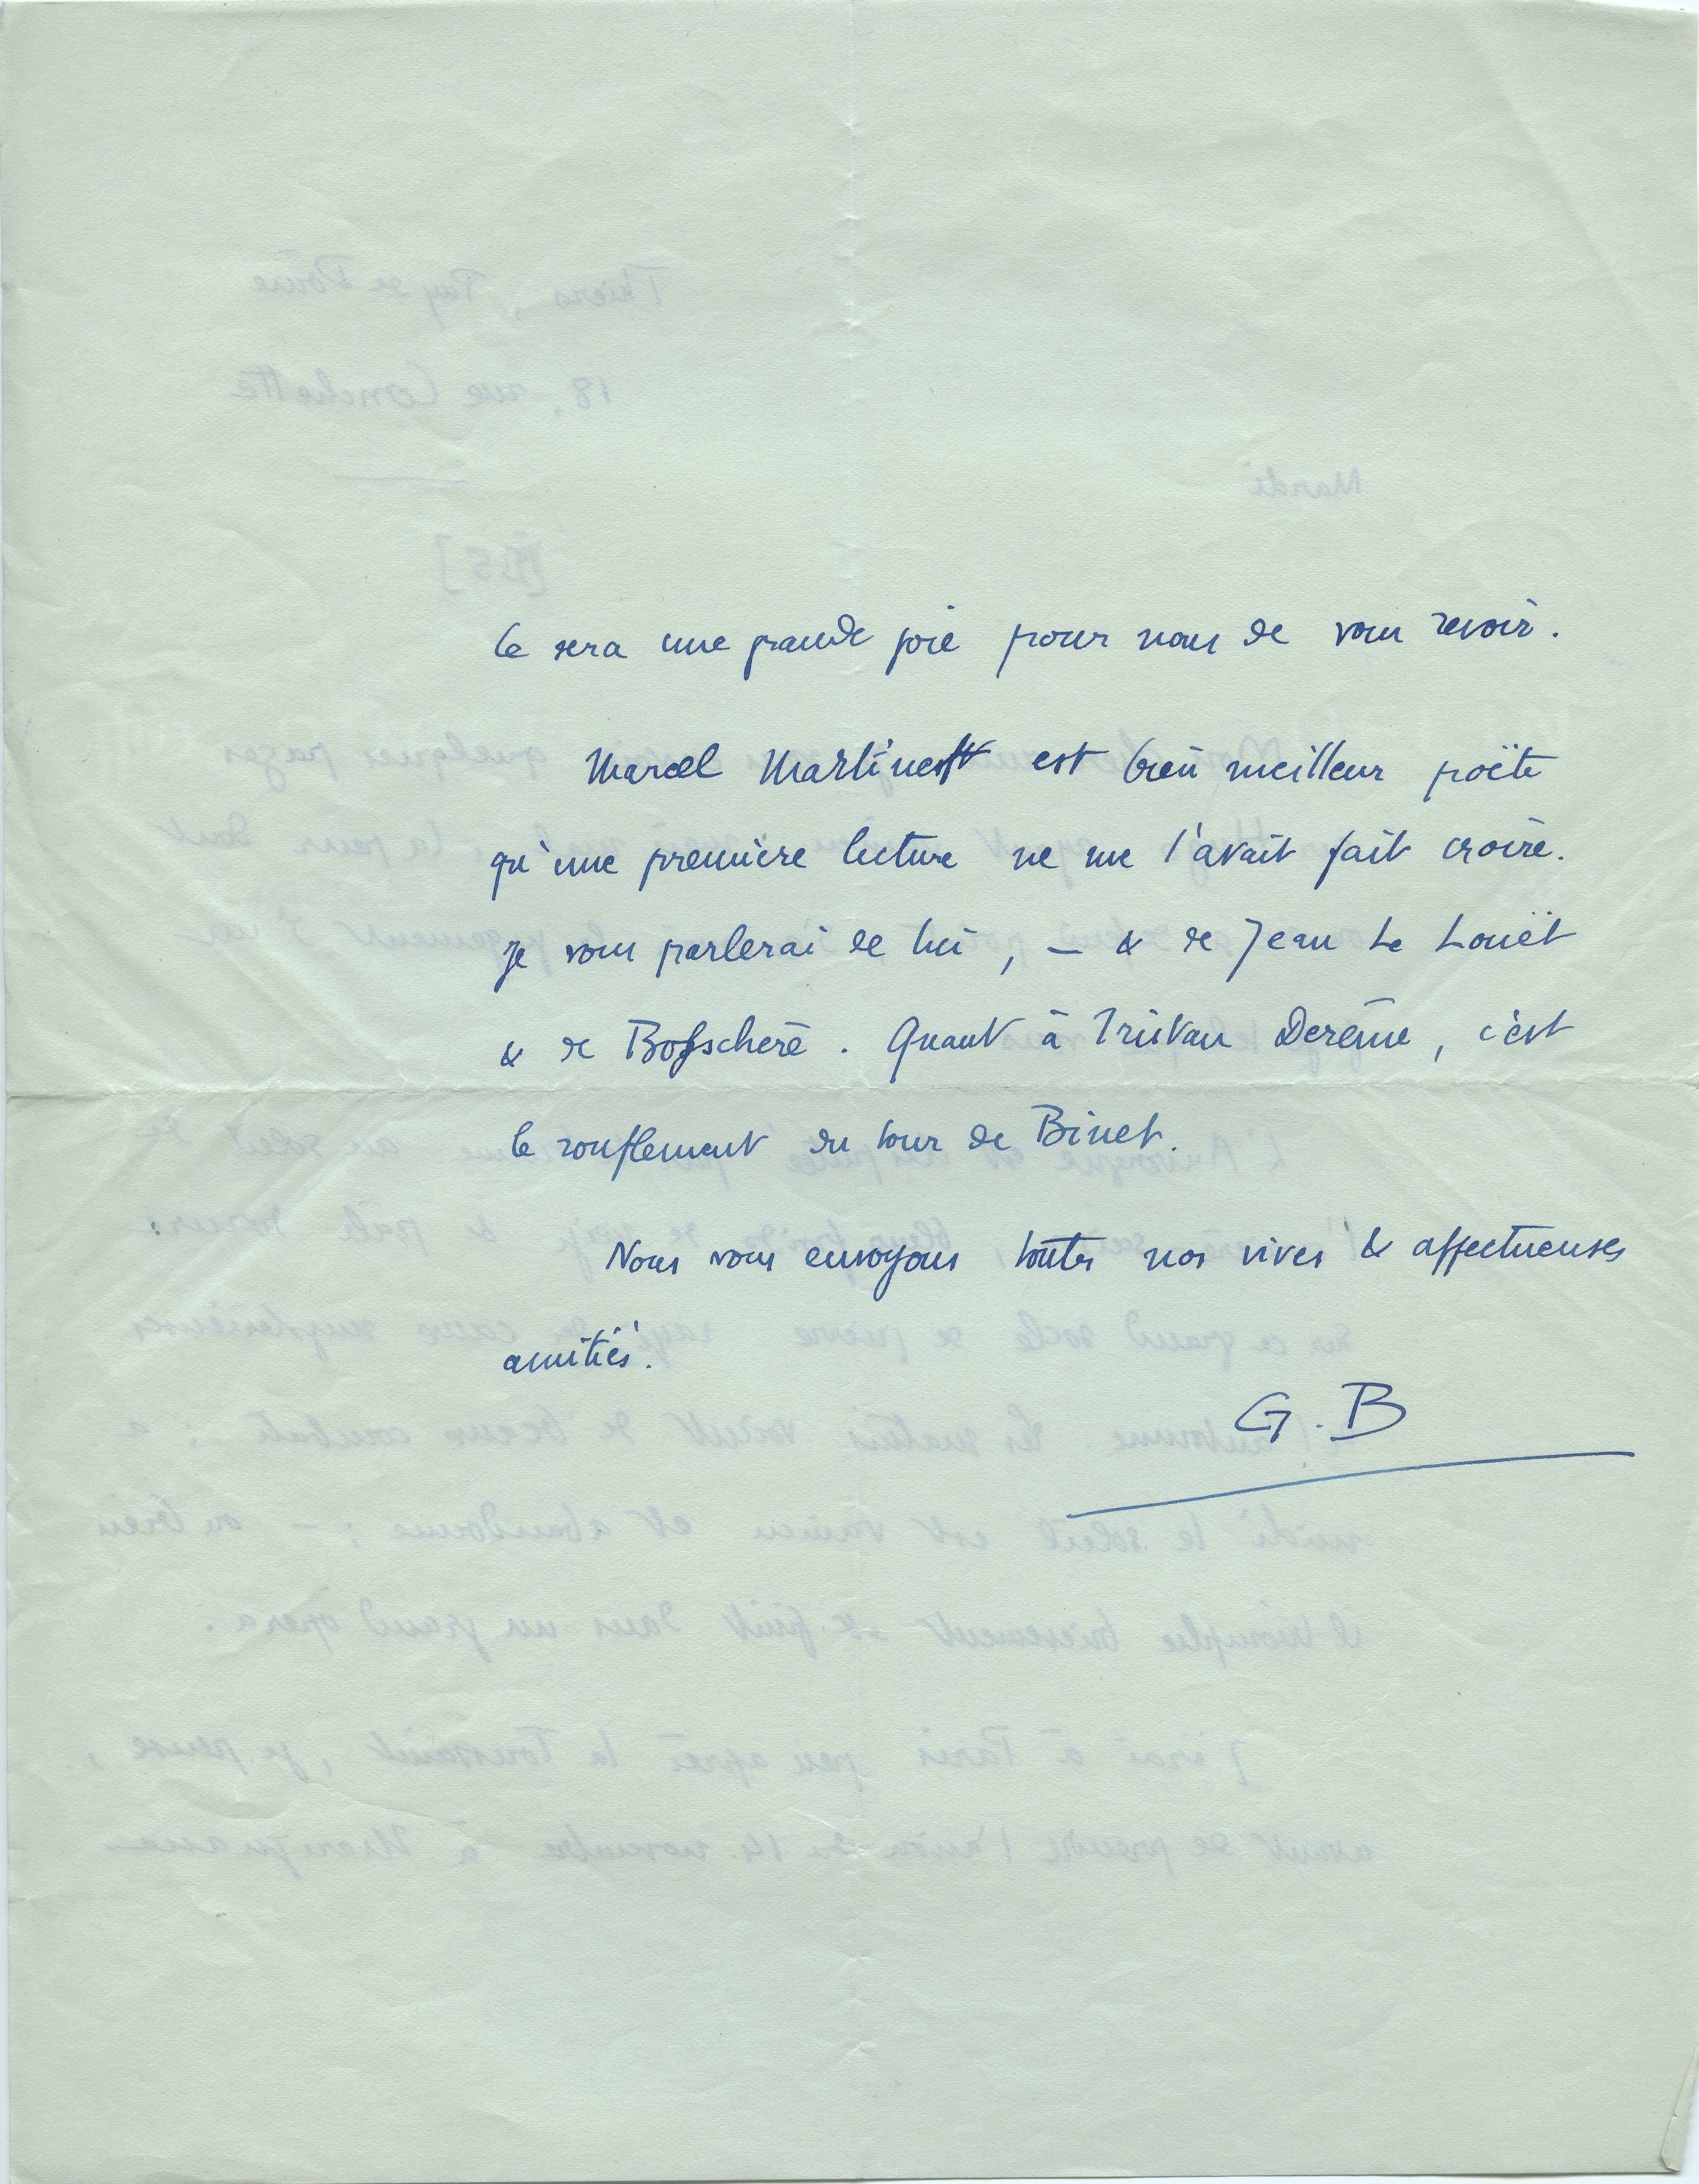 Ce sera une grande joie pour nous de vous revoir.
Marcel Martinet est bien meilleur poëte
qu'une première lecture ne me l'avait fait croire.
Je vous parlerai de lui, — & de Jean Le Louët
& de Bosschère. Quant à Tristan Derème, c'est
le ronflement du tour de Binet.
Nous vous envoyons toutes nos vives & affectueuses
amitiés.
G. B